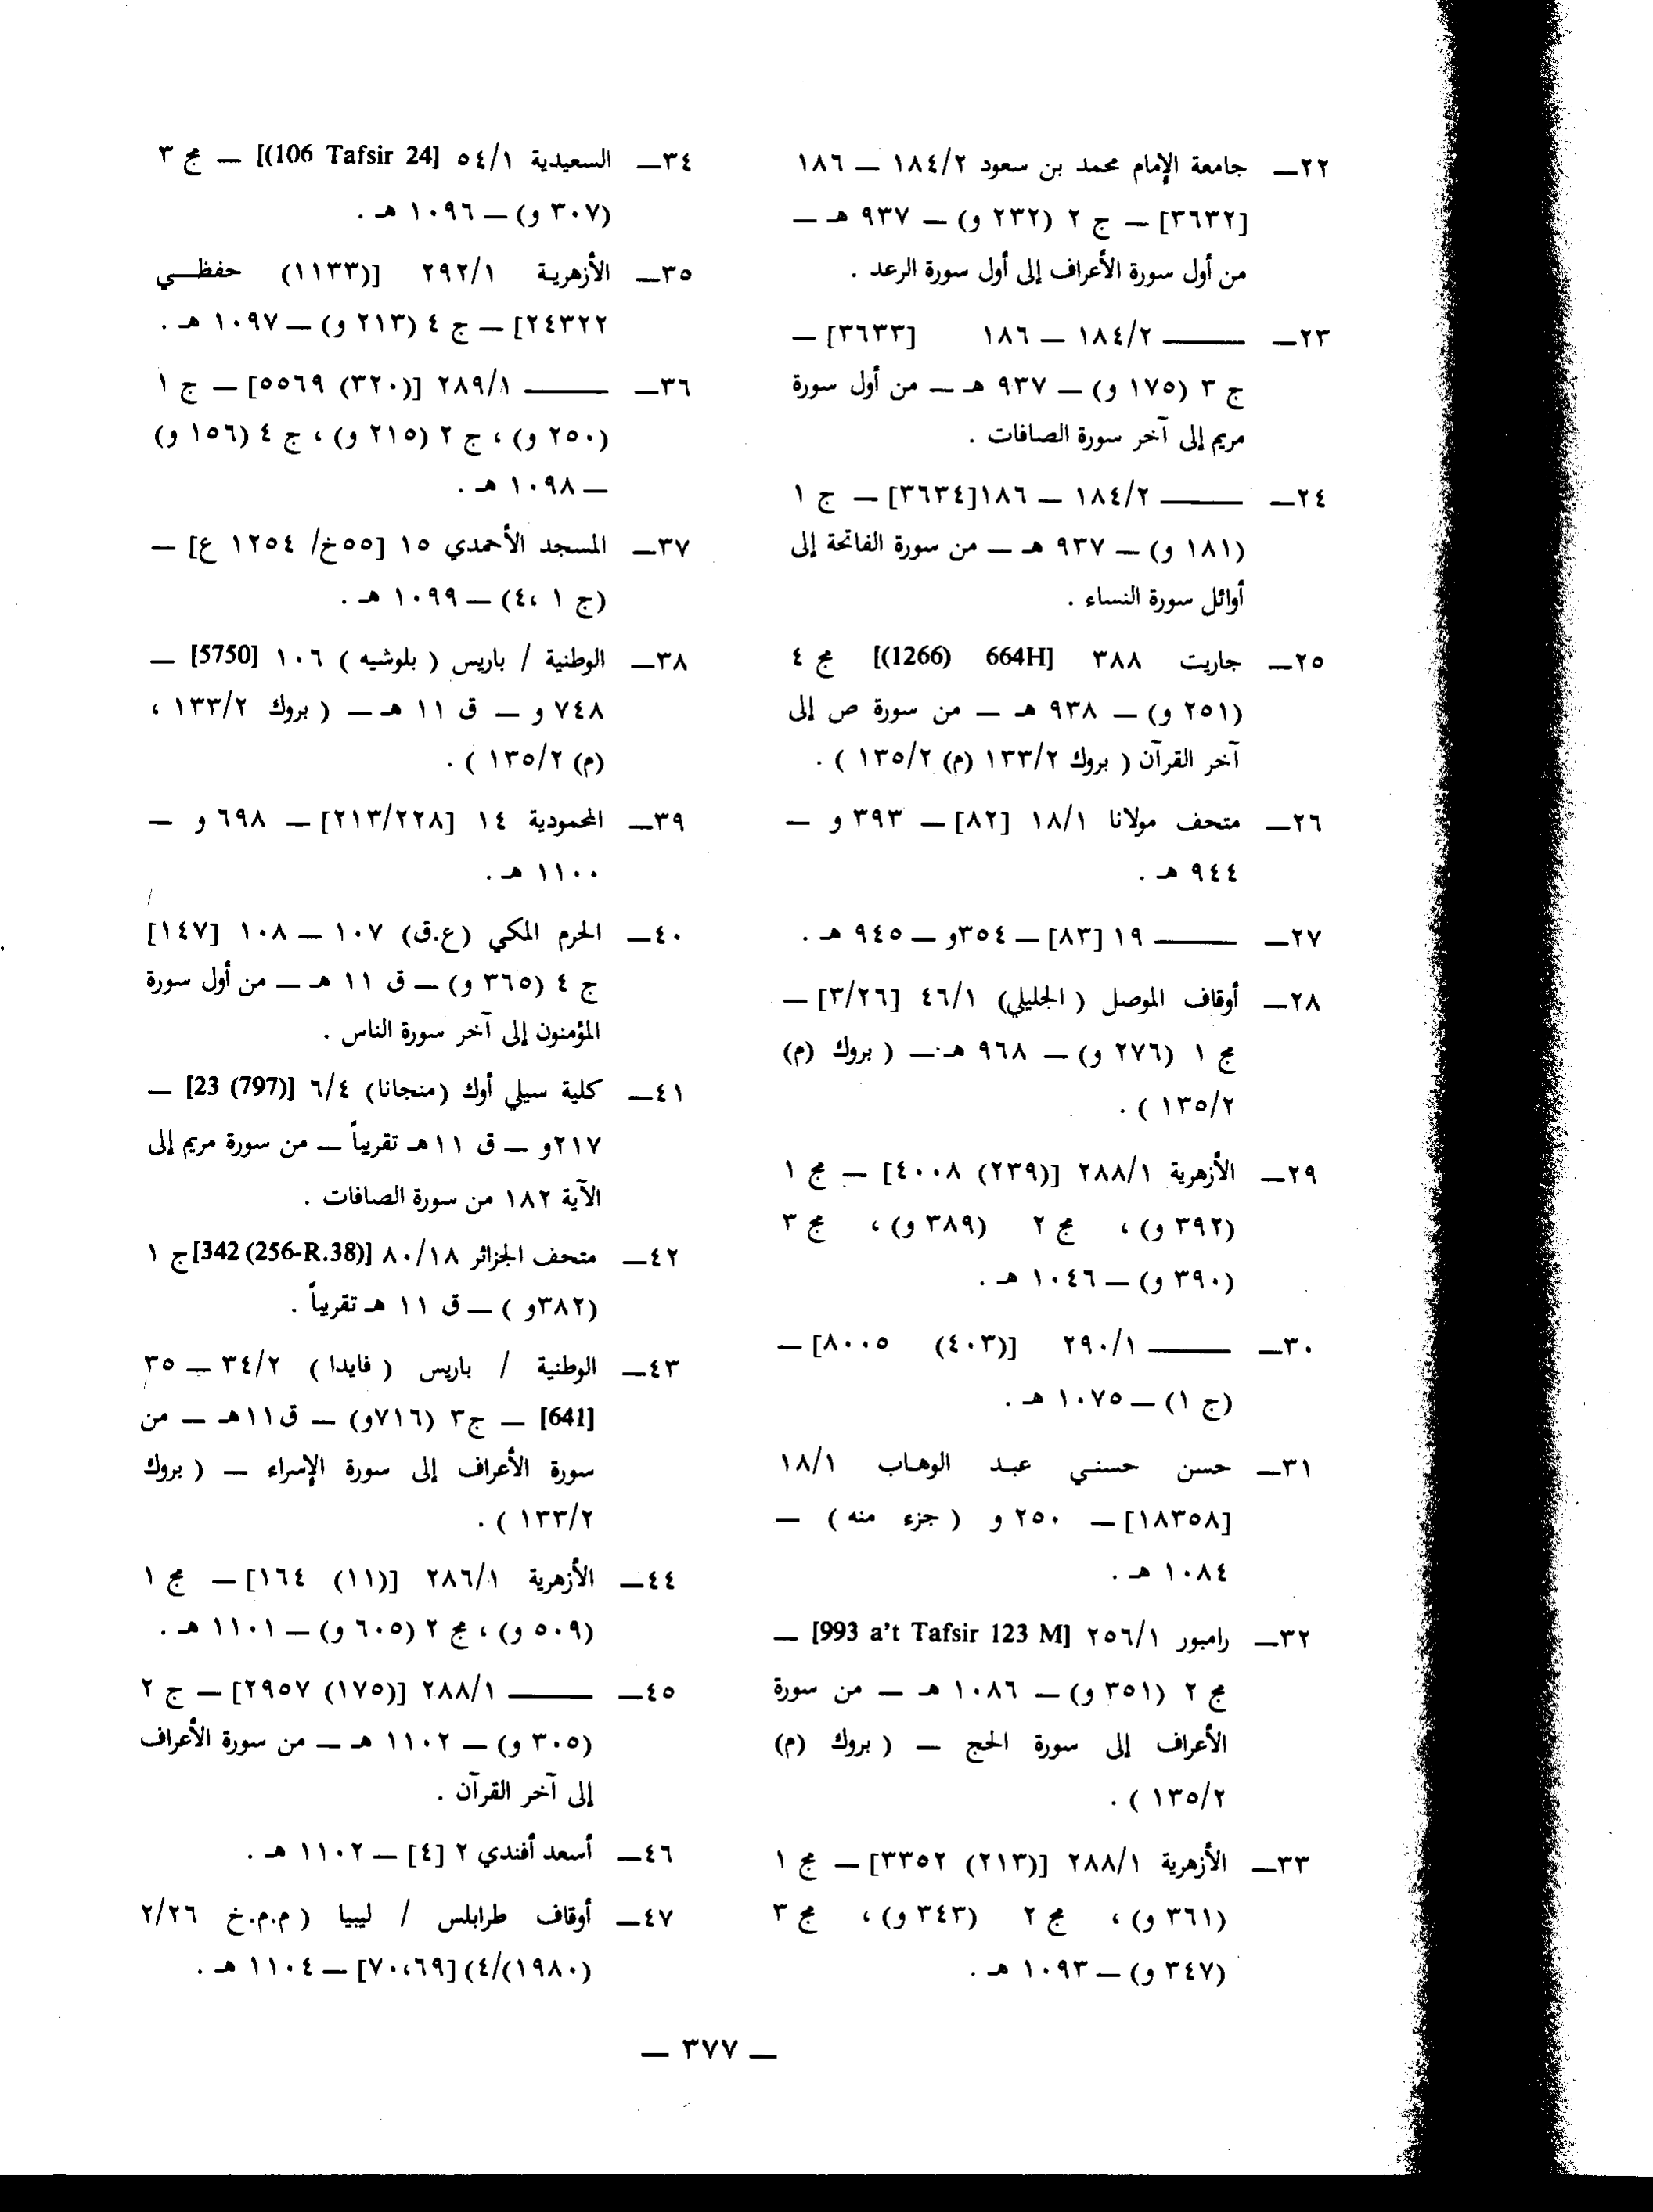 ٢٢— جامعة الإمام محمد بن سعود ١٨٤/٢ — ١٨٦
[٣٦٣٢] — ج ٢ (٢٣٢ و) — ٩٣٧ هـ —
من أول سورة الأعراف إلى أول سورة الرعد .
٢٣— ——— ١٨٤/٢ — ١٨٦ [٣٦٣٣] —
ج ٣ (١٧٥ و) — ٩٣٧ هـ — من أول سورة
مريم إلى آخر سورة الصافات .
٢٤— ——— ١٨٤/٢ — ١٨٦[٣٦٣٤] — ج ١
(١٨١ و) — ٩٣٧ هـ — من سورة الفاتحة إلى
أوائل سورة النساء .
٢٥— جاريت ٣٨٨ [(1266) 664H] مج ٤
(٢٥١ و) — ٩٣٨ هـ — من سورة ص إلى
آخر القرآن ( بروك ١٣٣/٢ (م) ١٣٥/٢ ) .
٢٦— متحف مولانا ١٨/١ [٨٢] — ٣٩٣ و —
٩٤٤ هـ .
٢٧— ——— ١٩ [٨٣] — ٣٥٤و — ٩٤٥ هـ .
٢٨— أوقاف الموصل ( الجليلي) ٤٦/١ [٣/٢٦] —
مج ١ (٢٧٦ و) — ٩٦٨ هـ — ( بروك (م)
١٣٥/٢ ) .
٢٩— الأزهرية ٢٨٨/١ [(٢٣٩) ٤٠٠٨] — مج ١
(٣٩٢ و) ، مج ٢ (٣٨٩ و) ، مج ٣
(٣٩٠ و) — ١٠٤٦ هـ .
٣٠— ——— ٢٩٠/١ [(٤٠٣) ٨٠٠٥] —
(ج ١) — ١٠٧٥ هـ .
٣١— حسن حسني عبد الوهاب ١٨/١
[١٨٣٥٨] — ٢٥٠ و ( جزء منه ) —
١٠٨٤ هـ .
٣٢— رامبور ٢٥٦/١ [993 a't Tafsir 123 M] —
مج ٢ (٣٥١ و) — ١٠٨٦ هـ — من سورة
الأعراف إلى سورة الحج — ( بروك (م)
١٣٥/٢ ) .
٣٣— الأزهرية ٢٨٨/١ [(٢١٣) ٣٣٥٢] — مج ١
(٣٦١ و) ، مج ٢ (٣٤٣ و) ، مج ٣
(٣٤٧ و) — ١٠٩٣ هـ .
٣٤— السعيدية ٥٤/١ [(106 Tafsir 24] — مج ٣
(٣٠٧ و) — ١٠٩٦ هـ .
٣٥— الأزهرية ٢٩٢/١ [(١١٣٣) حفظي
٢٤٣٢٢] — ج ٤ (٢١٣ و) — ١٠٩٧ هـ .
٣٦— ——— ٢٨٩/١ [(٣٢٠) ٥٥٦٩] — ج ١
(٢٥٠ و) ، ج ٢ (٢١٥ و) ، ج ٤ (١٥٦ و)
— ١٠٩٨ هـ .
٣٧— المسجد الأحمدي ١٥ [٥٥خ/ ١٢٥٤ ع] —
(ج ١ ،٤) — ١٠٩٩ هـ .
٣٨— الوطنية / باريس ( بلوشيه ) ١٠٦ [5750] —
٧٤٨ و — ق ١١ هـ — ( بروك ١٣٣/٢ ،
(م) ١٣٥/٢ ) .
٣٩— المحمودية ١٤ [٢١٣/٢٢٨] — ٦٩٨ و —
١١٠٠ هـ .
٤٠— الحرم المكي (ع.ق) ١٠٧ — ١٠٨ [١٤٧]
ج ٤ (٣٦٥ و) — ق ١١ هـ — من أول سورة
المؤمنون إلى آخر سورة الناس .
٤١— كلية سيلي أوك (منجانا) ٦/٤ [23 (797)] —
٢١٧و — ق ١١هـ تقريباً — من سورة مريم إلى
الآية ١٨٢ من سورة الصافات .
٤٢— متحف الجزائر ٨٠/١٨ [342 (256-R.38)]ج ١
(٣٨٢و ) — ق ١١ هـ تقريباً .
٤٣— الوطنية / باريس ( فايدا ) ٣٤/٢ — ٣٥
[641] — ج٣ (٧١٦و) — ق١١هـ — من
سورة الأعراف إلى سورة الإسراء — ( بروك
١٣٣/٢ ) .
٤٤— الأزهرية ٢٨٦/١ [(١١) ١٦٤] — مج ١
(٥٠٩ و) ، مج ٢ (٦٠٥ و) — ١١٠١ هـ .
٤٥— ——— ٢٨٨/١ [(١٧٥) ٢٩٥٧] — ج ٢
(٣٠٥ و) — ١١٠٢ هـ — من سورة الأعراف
إلى آخر القرآن .
٤٦— أسعد أفندي ٢ [٤] — ١١٠٢ هـ .
٤٧— أوقاف طرابلس / ليبيا ( م.م.خ ٢/٢٦
(١٩٨٠)/٤) [٧٠،٦٩] — ١١٠٤ هـ .
— ٣٧٧ —